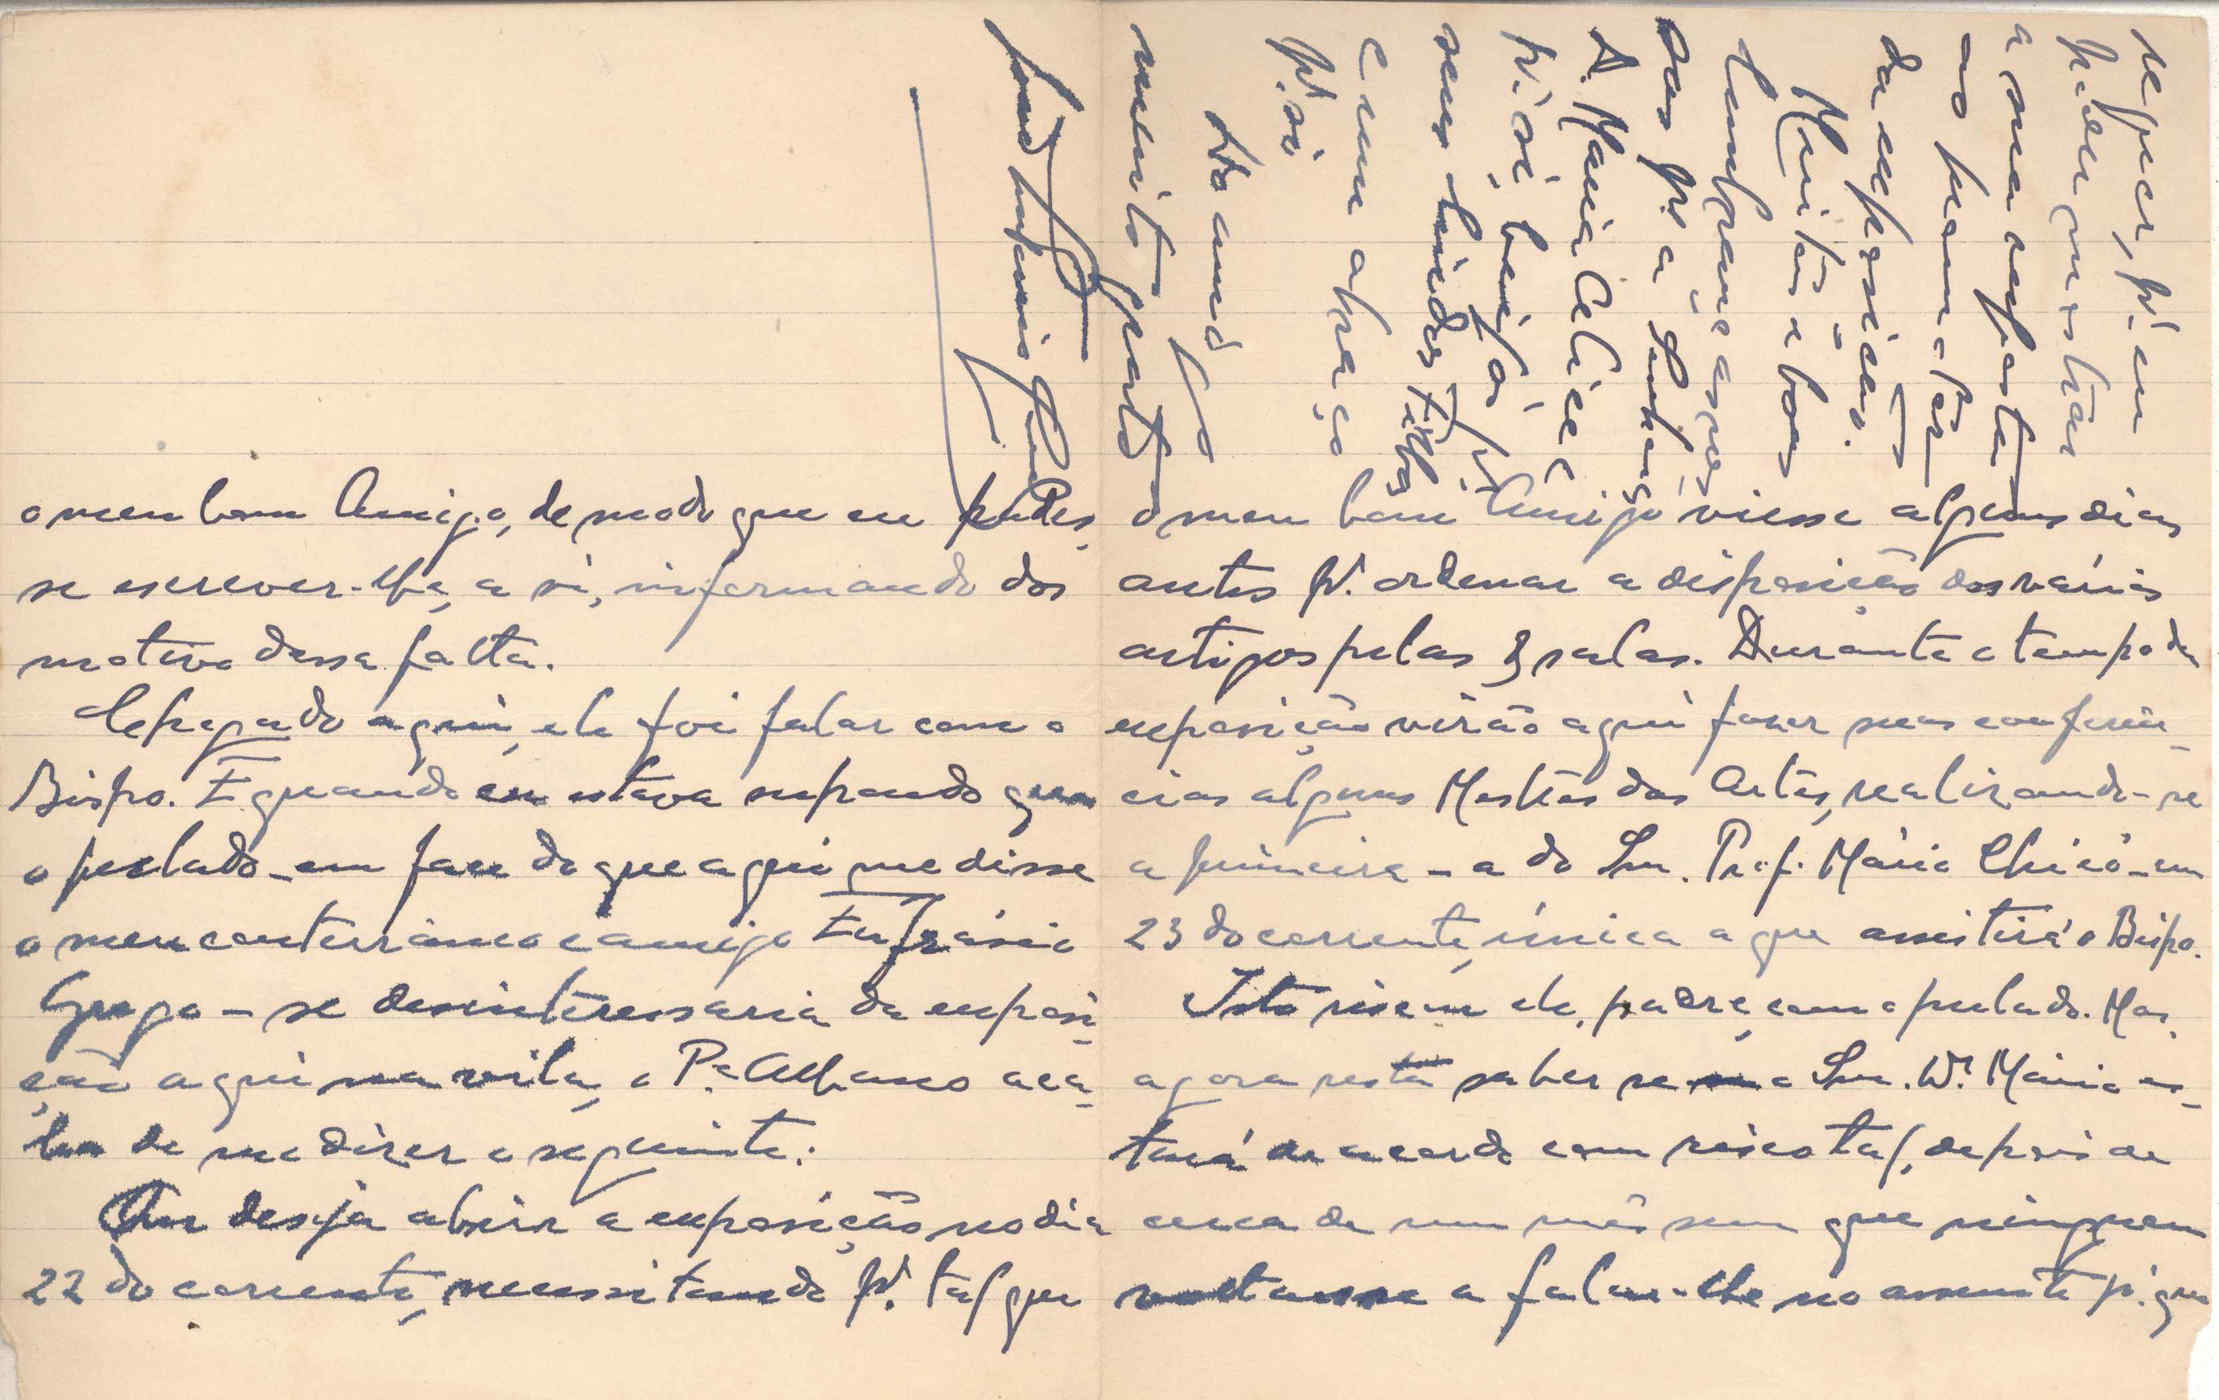 o meu bom Amigo, de modo que eu pudes-
se escrever-lhe, a si, informando dos
motivo dessa falta.
Chegado aqui, ele foi falar com o
Bispo. E quando eu estava supondo que
o prelado - em face do que aqui me disse
o meu conterrâneo e amigo Eufrásio
- se desinteressaria da exposi-
ção aqui na vila, o P.e Albano aca-
ba de me dizer o seguinte:
Que deseja abrir a exposição no dia
22 do corrente, necessitando p.ª tal que
o meu bom Amigo viesse alguns dias
antes p.ª ordenar a disposição dos vários
artigos pelas 3 salas. Durante o tempo da
exposição virão aqui fazer suas conferên-
cias alguns Mestres das Artes, realizando-se
a primeira - a do Snr. Prof. Mário Chicó - em
23 do corrente, única a que assistirá o Bispo.
Isto ele, padre, com o prelado. Mas,
agora resta saber se o Snr. D.r Mário es-
tará de acordo com tal, depois de
cerca de um mês sem que ninguem
voltasse a falar-lhe no assunto p.ª que
se quer, p.ª eu
a sua resposta
ao
da exposição.
Muitas e boas
lembranças
das p.ª a Senhora
D. Maria Celice
p.ª si, beijos p.ª
seus lindos Filhos
e um abraço
p.ª si
do amigo
muito grato
José António